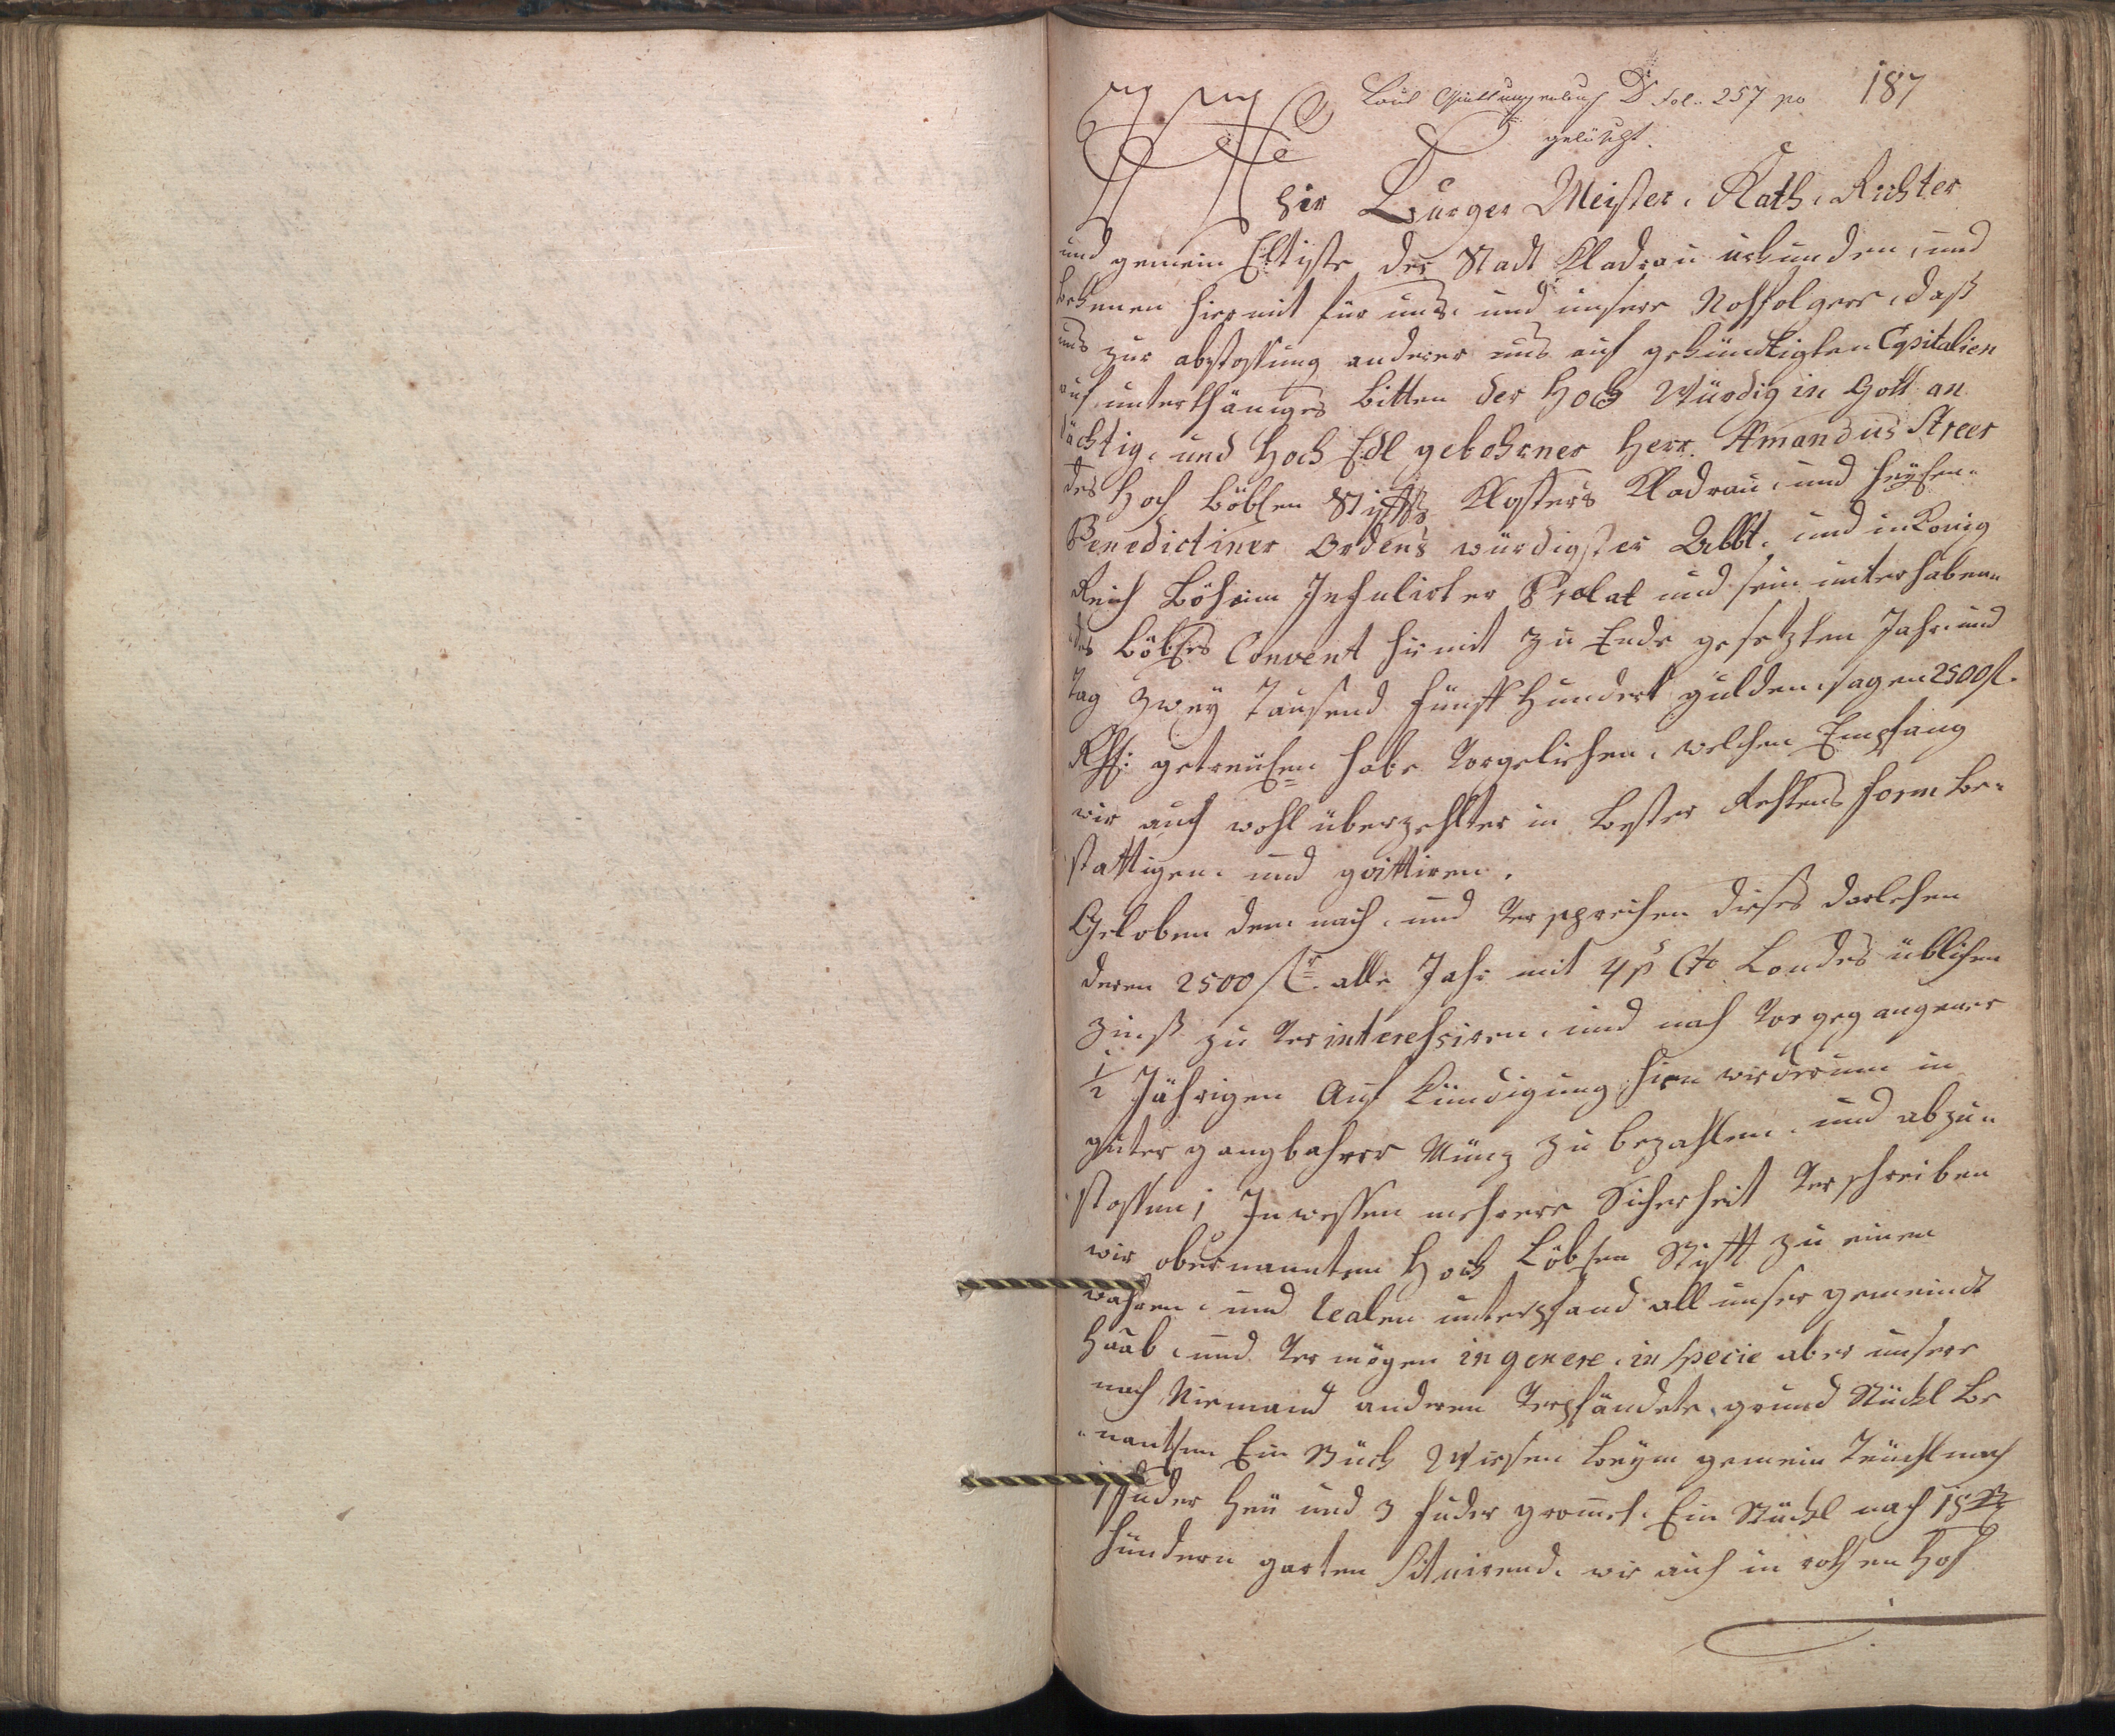 Laut Quittungenbuch D fol. 257 po 187
gelöscht.
Wir Burger Meister, Rath, Richter
und gemein Eltiste der Stadt Kladrau urkunden, und
bekenen hiermit für uns, und unsere Nachfolgere, daß
uns zur abstossung anderer uns auf gekündtigten Capitalien
auf unterthäniges bitten der Hoch Würdig in Gott an
dächtig, und Hoch Edl gebohrner Herr Amandus Streer
des Hoch Löblen Stiffts Closters Kladrau, und
Benedictiner Ordens würdigster Abbt, und in König
Reich Böheim Infulirter Prælat und sein unterhaben
des Löbles Convent hiemit zu Ende gesetzten Jahr und
Tag Zwey Tausend fünff Hundert gulden, sagen 2500 fl.
getreulen habe Vorgelichen, welchen Empfang
wir auch wohl überzehlter in bester Rechtens form be-
stattigen, und quittiren.
Geloben dem nach, und Versprechen dieses darlehen
deren 2500 fl. alle Jahr mit 4 p Cto Landes üblichen
Zinß zu Verinteressiren, und nach Vorgegangener
1/2 Jährigen Auf Kündigung hinwiderum in
guter gangbahrer Münz zu bezahlen, und abzu-
stossen; In wessen mehrere Sicherheit Verschreiben
wir obernannten Hoch Löblen Stifft zu einen
wahren, und realen unterpfand all unser gemeinde
Haab, und Vermögen in genere, in specie aber unsere
noch Niemand anderen Verpfändete grund Stückl be
nantlen Ein Stück Wiesen beym gemein Teuchl nach
fuder Heu und 3 fuder gromet. Ein Stückl nach 15
hundern garten Situirend, wie auch in rothen Hof